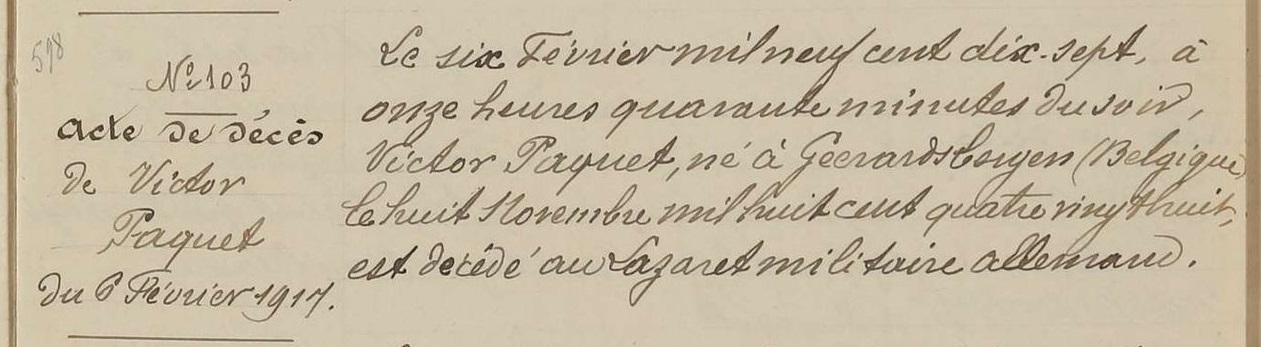 598
Nº 103
acte de décès
de Victor
Paquet
du 6 Février 1917.
Le six Février mil neuf cent dix-sept, à
onze heures quarante minutes du soir,
Victor Paquet, né à Geerardsbergen (Belgique)
le huit Novembre mil huit cent quatre vingt huit,
est décédé au Lazaret militaire allemand.